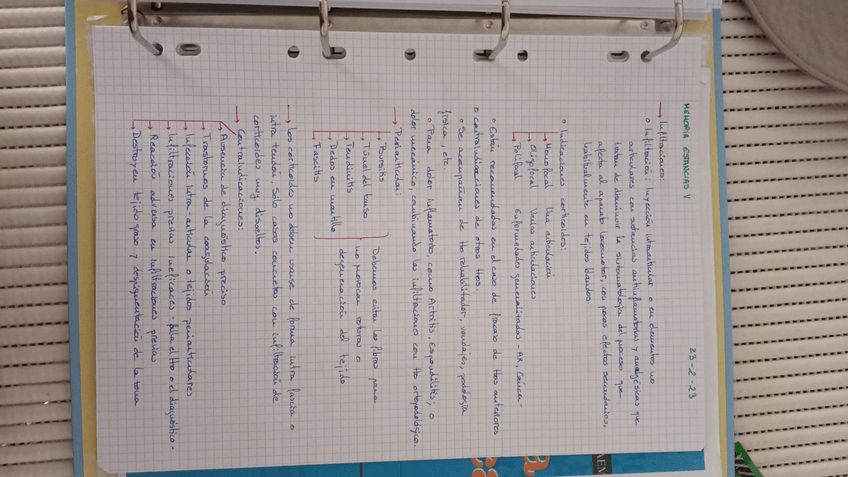 MEMORIA ESTANCIAS V
23-2-23
→ Infiltraciones:
o Infiltración: Inyección intraarticular o en elementos no
articulares con sustancias antiinflamatorias y analgésicas que
tratan de disminuir la sintomatología del proceso que
afecta al aparato locomotor, con pocos efectos secundarios,
habitualmente en tejidos blandos
o Indicaciones corticoides:
Monofocal Una articulación
Oligofocal Varias articulaciones
Polifocal Enfermedades generalizadas - AR,
o Están recomendadas en el caso de fracaso de ttos anteriores
o contraindicaciones de otros ttos.
o Se acompañan de tto rehabilitador, vendajes, podología
física, etc.
o Para dolor inflamatorio, como Artritis, Espondilitis, o
dolor mecánico, combinando las infiltraciones con tto ortopodológico.
→ Periarticular:
Bursitis
Túnel del tarso
Tendinitis
Dedos en martillo
Fascitis
Debemos evitar las fibras para
no provocar roturas o
degeneración del tejido
→ Los corticoides no deben usarse de forma intra fascia o
intra tendón. Sólo casos concretos con infiltración de
corticoides muy disueltos.
→ Contraindicaciones:
Ausencia de diagnóstico preciso
Trastornos de la coagulación
Infección intra-articular o tejidos periarticulares
Infiltraciones previas ineficaces - falla el tto o el diagnóstico -
Reacción adversa en infiltraciones previas
Destruyen tejido graso y despigmentación de la zona